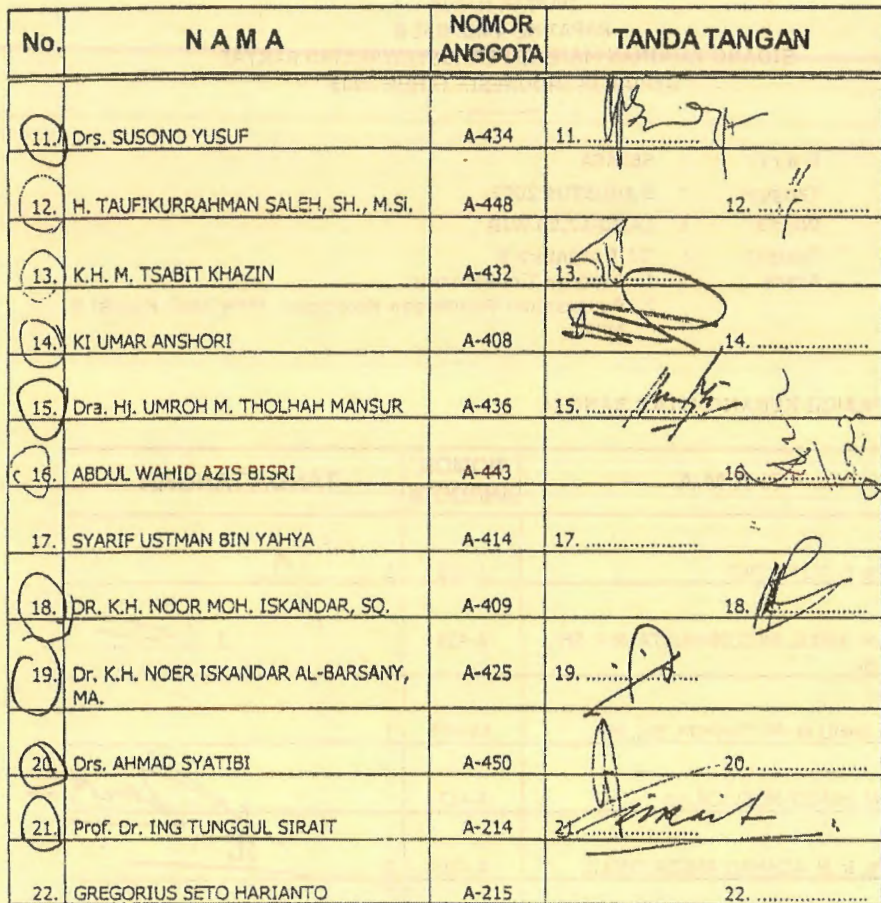 No. NAMA NOMOR ANGGOTA TANDA TANGAN
11. Drs. SUSONO YUSUF A-434 11. ....................
12. H. TAUFIKURRAHMAN SALEH, SH., M.Si. A-448 12. ....................
13. K.H. M. TSABIT KHAZIN A-432 13. ....................
14. KI UMAR ANSHORI A-408 14. ....................
15. Dra. Hj. UMROH M. THOLHAH MANSUR A-436 15. ....................
16. ABDUL WAHID AZIS BISRI A-443 16. ....................
17. SYARIF USTMAN BIN YAHYA A-414 17. ....................
18. DR. K.H. NOOR MOH. ISKANDAR, SQ. A-409 18. ....................
19. Dr. K.H. NOER ISKANDAR AL-BARSANY, A-425 19. ....................
MA.
20. Drs. AHMAD SYATIBI A-450 20. ....................
21. Prof. Dr. ING TUNGGUL SIRAIT A-214 21. .................... Sirait
22. GREGORIUS SETO HARIANTO A-215 22. ....................